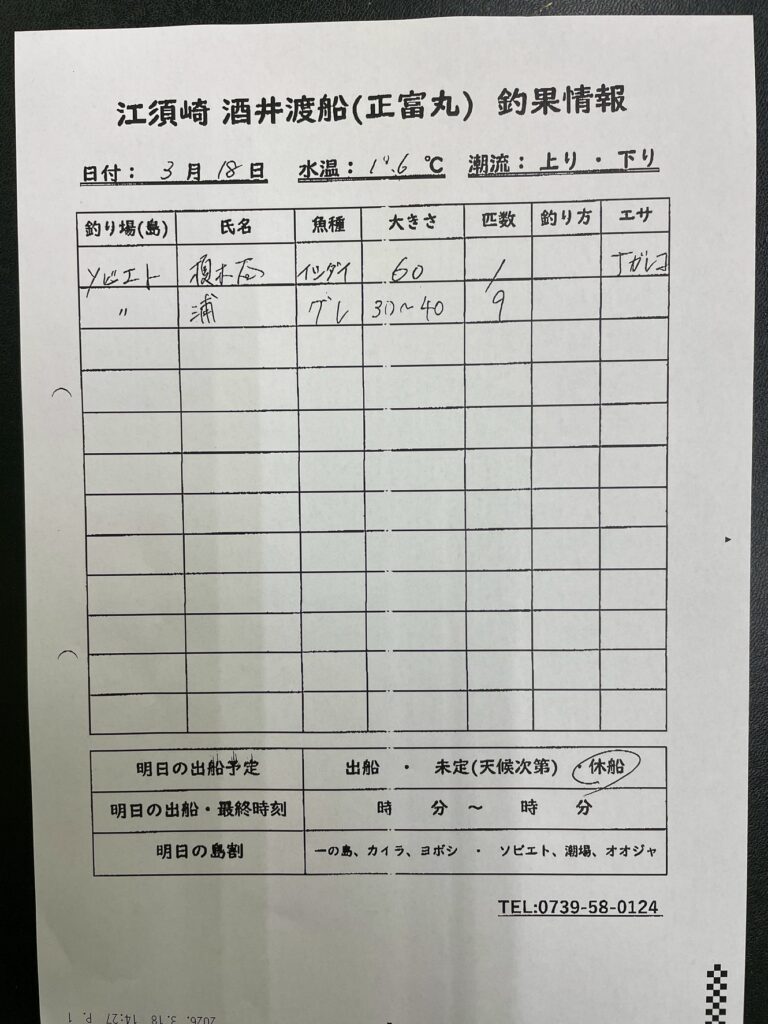 江須崎 酒井渡船(正富丸) 釣果情報
日付： 3 月 18 日 水温： ℃ 潮流： 上り ・ 下り
釣り場(島) 氏名 魚種 大きさ 匹数 釣り方 エサ
ソビエト イシダイ 60 1
〃 浦 グレ 30〜40 9
明日の出船予定 出船 ・ 未定(天候次第) ・ 休船
明日の出船・最終時刻 時 分 〜 時 分
明日の島割 一の島、カイラ、ヨボシ ・ ソビエト、潮場、オオジャ
TEL:0739-58-0124
2026. 3.18 14:27 P. 1